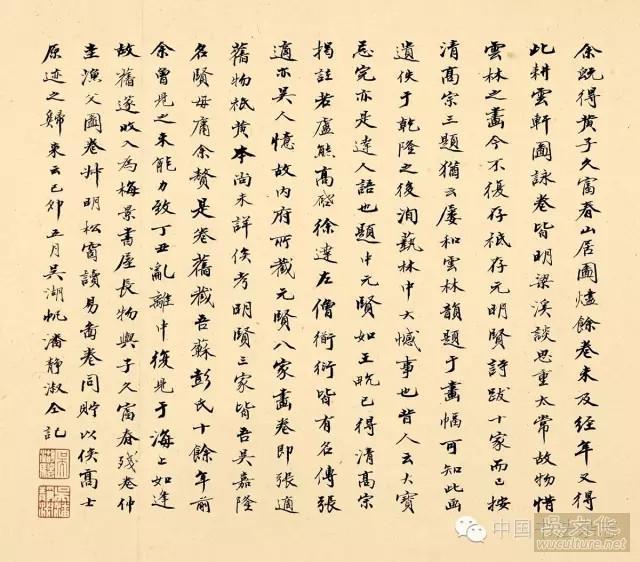 余既得黄子久富春山居圖燼餘卷未及經年又得
此耕雲軒圖詠卷皆明梁溪談思重太常故物惜
雲林之畫今不復存祗存元明賢詩跋十家而已按
清髙宗三題猶云屢和雲林韻題于畫幅可知此圖
遺佚于乾隆之後洵藝林中大憾事也昔人云大寶
忌完亦是達人語也題中元賢如王畛已得清髙宗
揭註若盧熊髙啓徐達左僧衜衍皆有名傳張
適亦吴人憶故内府所藏元賢八家畫卷即張適
舊物祗黄本尚未詳俟考明賢三家皆吾吴嘉隆
名賢毋庸余贅是卷舊藏吾蘇彭氏十餘年前
余曾見之未能力致丁丑亂離中復見于海上如逢
故舊遂收入為梅景書屋長物與子久富春殘卷仲
圭漁父圖卷叔明松窗讀易圖卷同貯以俟髙士
原迹之歸來云己卯五月吴湖帆潘静淑仝記
中国
吳文化
wuculture.net